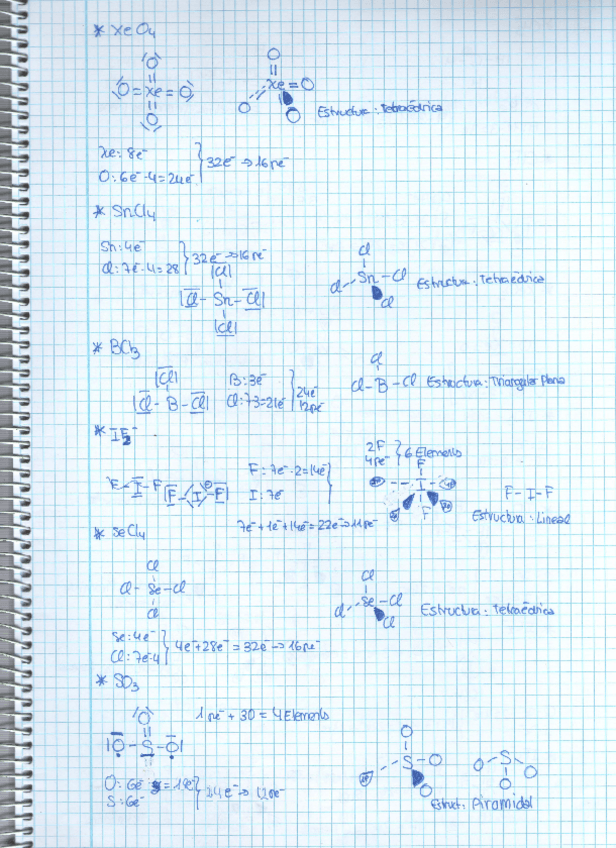 * XeO4
O
O = Xe = O
O
O
Xe = O
O
O
Estructura: Tetraédrica
Xe: 8e⁻
O: 6e⁻·4 = 24e⁻
32e⁻ → 16pe⁻
* SnCl4
Sn: 4e⁻
Cl: 7e⁻·4 = 28
32e⁻ → 16pe⁻
Cl
Cl - Sn - Cl
Cl
Cl
Sn - Cl
Cl
Cl
Estructura: Tetraédrica
* BCl3
Cl
Cl - B - Cl
B: 3e⁻
Cl: 7·3 = 21e⁻
24e⁻
12pe⁻
Cl
Cl - B - Cl
Estructura: Triangular Plana
* IF2⁻
F - I - F
F - I - F
F: 7e⁻·2 = 14e⁻
I: 7e⁻
7e⁻ + 1e⁻ + 14e⁻ = 22e⁻ → 11pe⁻
2F
4pe⁻
6 Elements
F
I
F
F - I - F
Estructura: Lineal
* SeCl4
Cl
Cl - Se - Cl
Cl
Se: 4e⁻
Cl: 7e⁻·4
4e⁻ + 28e⁻ = 32e⁻ → 16pe⁻
Cl
Se - Cl
Cl
Cl
Estructura: Tetraédrica
* SO3
1pe⁻ + 3O = 4 Elements
O
O - S - O
O: 6e⁻ = 18e⁻
S: 6e⁻
24e⁻ → 12pe⁻
O
S - O
O
O
S
O
O
Estruct: Piramidal